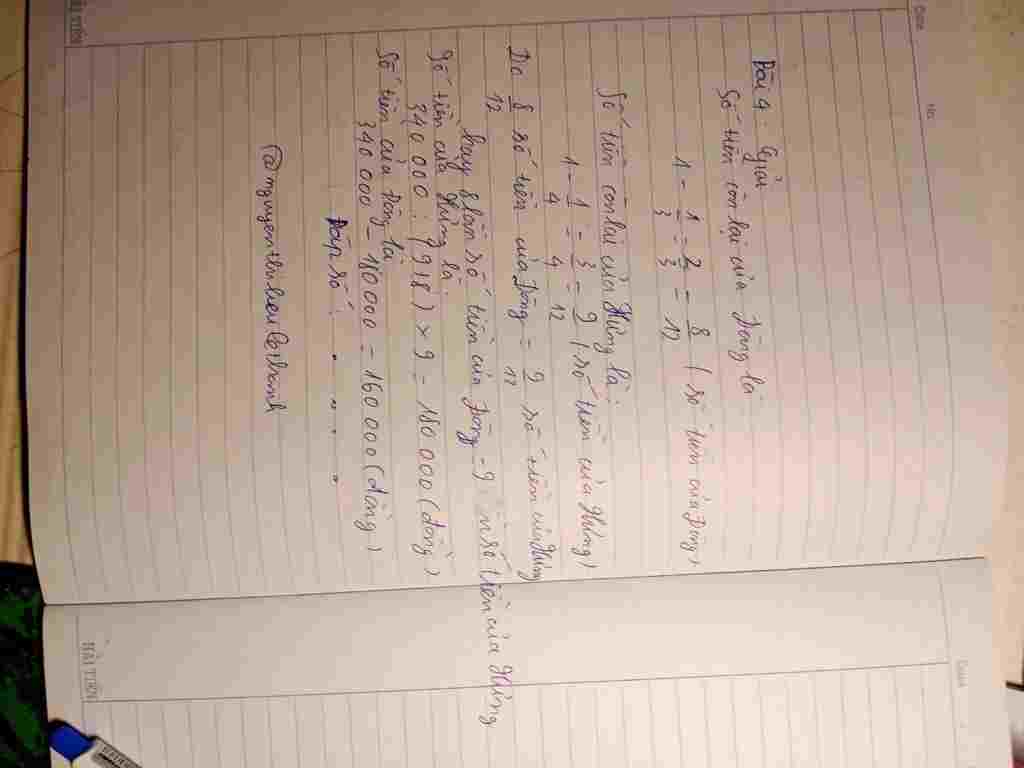 Date
No.
Bài 4: Giải
Số tiền còn lại của Dũng là
1 - 1/3 = 2/3 = 8/12 (số tiền của Dũng)
Số tiền còn lại của Hùng là
1 - 1/4 = 3/4 = 9/12 (số tiền của Hùng)
Do 8/12 số tiền của Dũng = 9/12 số tiền của Hùng
hay 8 lần số tiền của Dũng = 9 số tiền của Hùng
Số tiền của Hùng là
340 000 : (9+8) x 9 = 180 000 (đồng)
Số tiền của Dũng là
340 000 - 180 000 = 160 000 (đồng)
Đáp số:
HẢI TIẾN
HẢI TIẾN